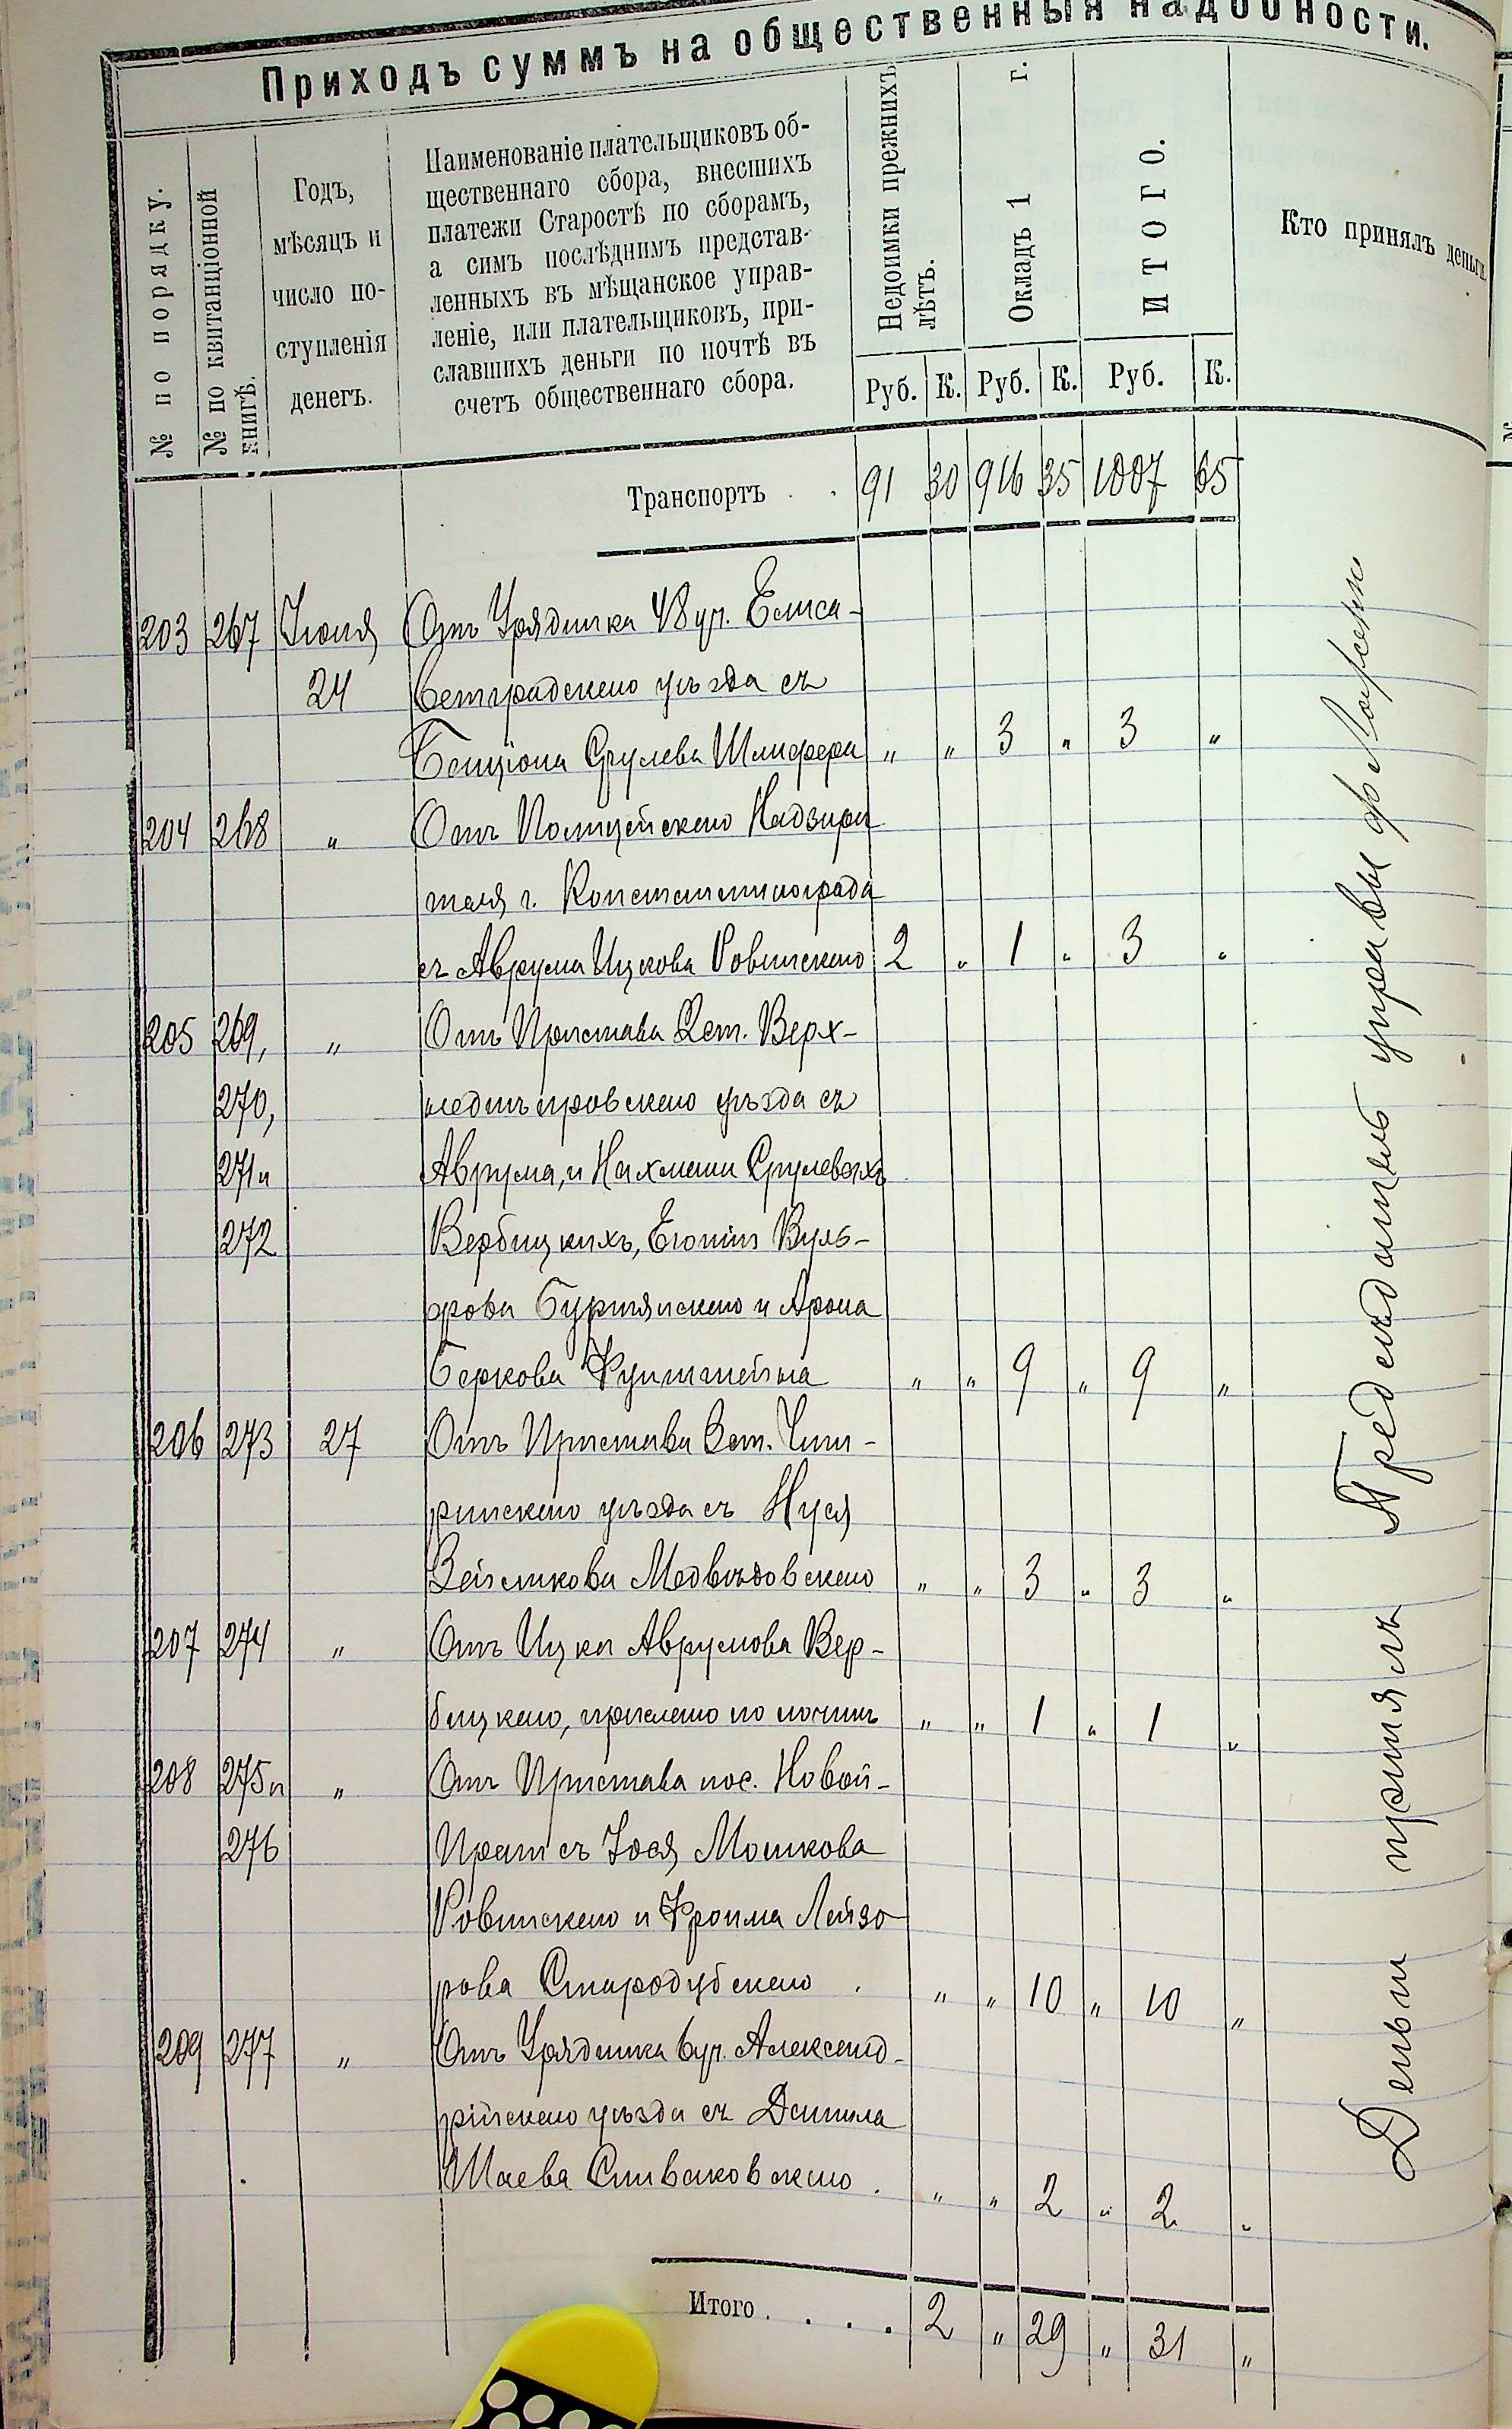 Приходъ суммъ на общественныя надобности.
№ по порядку.
№ по квитанціонной книгѣ.
Годъ, мѣсяцъ и число поступленія денегъ.
Наименованіе плательщиковъ об-
щественнаго сбора, внесшихъ
платежи Старостѣ по сборамъ,
а симъ послѣднимъ представ-
ленныхъ въ мѣщанское управ-
леніе, или плательщиковъ, при-
славшихъ деньги по почтѣ въ
счетъ общественнаго сбора.
Недоимки прежнихъ лѣтъ.
Окладъ 1 г.
ИТОГО.
Кто принялъ деньги.
Руб. К. Руб. К. Руб. К.
Транспортъ . . 91 30 916 35 1007 65
203 267 Іюня Отъ Урядника 48 уч. Елиса-
24 ветградскаго уѣзда съ
Бенціона Срулева Шлифера " " 3 " 3 "
204 268 " Отъ Полицейскаго Надзира
теля г. Константинограда
съ Аврума Ицкова Ровинскаго 2 " 1 " 3 "
205 269, " Отъ Пристава 2 ст. Верх-
270, недѣпровскаго уѣзда съ
271 и Аврума, и Нахмана Срулевыхъ
272 Вербицкихъ, Вуль-
фова Буртянскаго и Арона
Беркова Функштейна " " 9 " 9 "
206 273 27 Отъ Пристава 3 ст. Чиги-
ринскаго уѣзда съ Нуся
Зейликова Медвѣдовскаго " " 3 " 3 "
207 274 " Отъ Ицка Аврумова Вер-
бицкаго, прислано по почтѣ " " 1 " 1 "
208 275 и " Отъ Пристава пос. Новой-
276 Праги съ Іося Мошкова
Ровинскаго и Фроима Лейзо
рова Стародубскаго . " " 10 " 10 "
209 277 " Отъ Урядника 6 уч. Александ-
рійскаго уѣзда съ Данила
Шаева Сиваковскаго . " " 2 " 2 "
Итого . . . . 2 " 29 " 31 "
Деньги принялъ Предсѣдатель управы